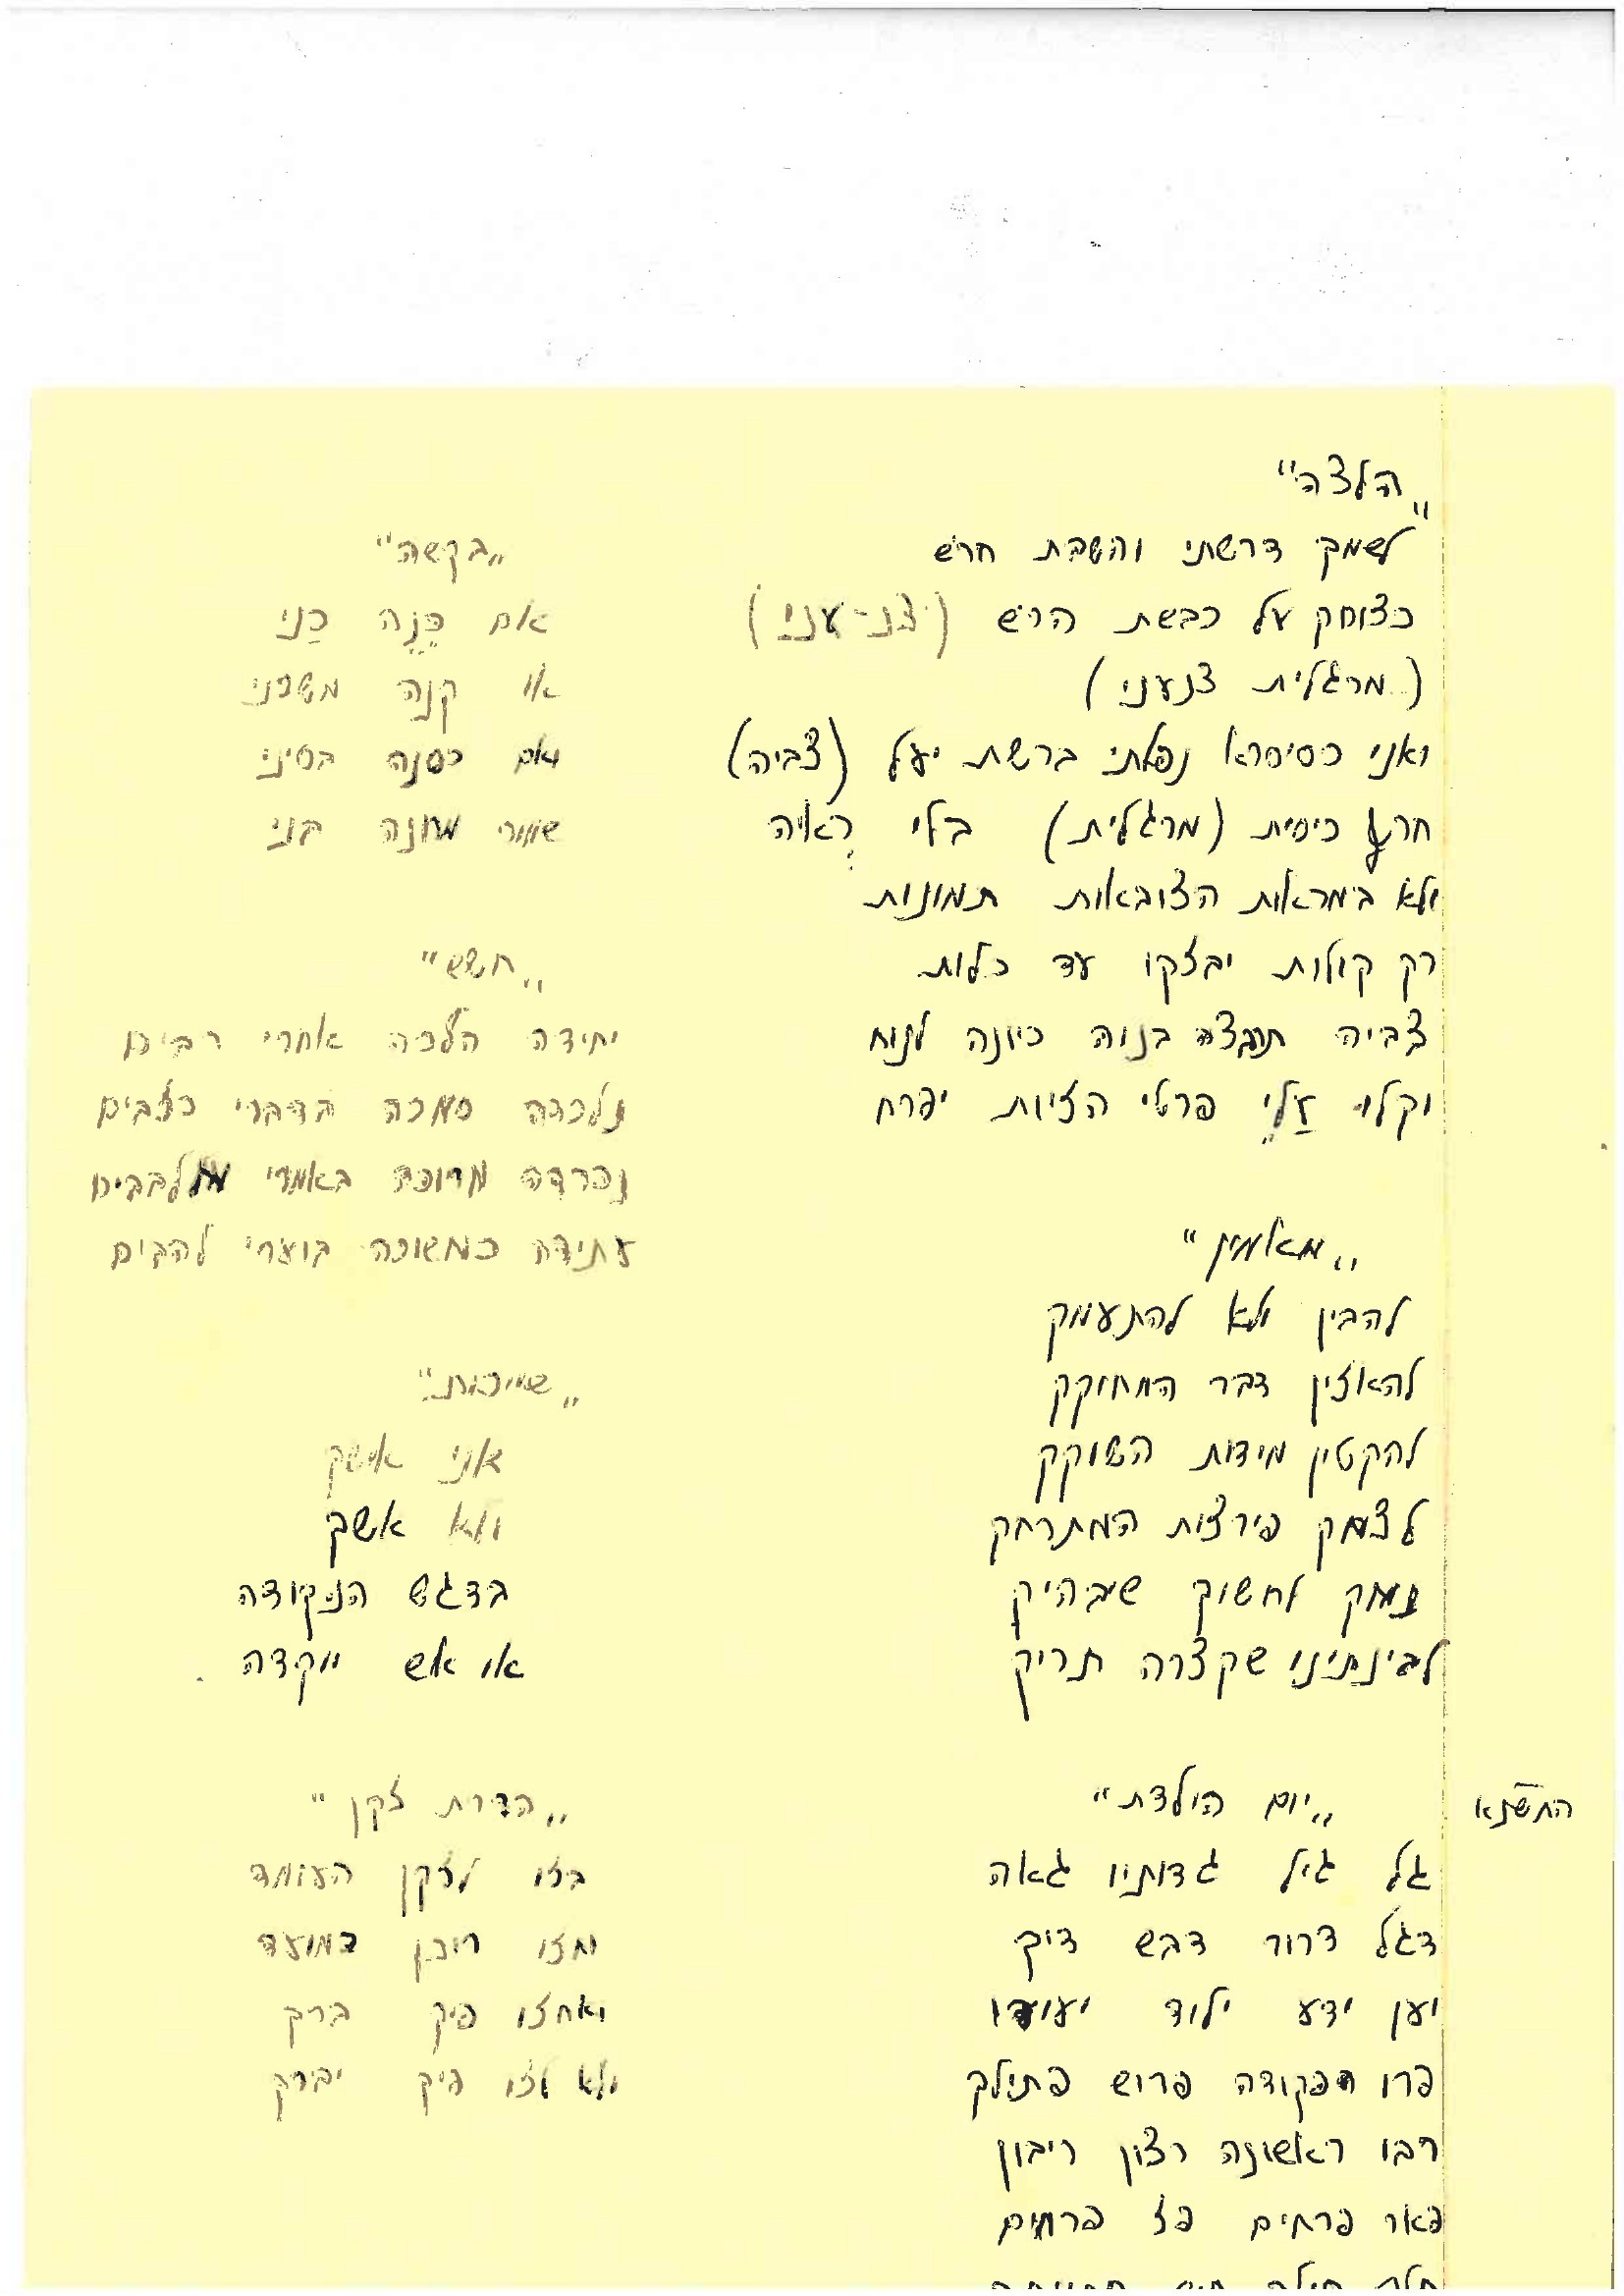 „הלצה"
לשמך דרשתי והשבת חרש
כצוחק על כבשת הרש (צנ-עני)
(מרגלית צנעני)
ואני כסיסרא נפלתי ברשת יעל (צביה)
חרץ כיסית (מרגלית) בלי ראיה
ולא במראות הצובאות תמונות
רק קולות יבזקו עד כלות
צביה בנוה כיונה לנוח
וקלוי עלי פרטי הזיות יפרח
„מאמין"
להבין ולא להתעמק
להאזין דבר המחוקק
להקטין מידות השוקק
לצמק פירצות המתרחק
נמק לחשוך שיבהיק
לבינתינו שקצרה תריק
התשנא
„יום הולדת"
גל גיל גדותיו גאה
דגל דרור דבש דוק
יען ידע ילוד יעודו
פרו הפקודה פרוש פתילך
רבו ראשונה רצון ריבון
פאר פרחים פז פרחים
„בקשה"
אם כנה כני
או קנה משכני
ואם כסנה בסיני
שמור מחנה בני
„חשש"
יחידה הלכה אחרי רבים
נלכדה סמכה בדברי כזבים
נפרדה מרופת באמרי מלבבים
עתידה כמשוכה בוערי להבים
„שייכות"
אני אשק
ולא אשך
בדגש הנקודה
או אש יוקדה
„הדרת זקן"
בזו לזקן העומד
וחזו ריבון במועד
ואחזו פיק ברך
ולא לזו פיק יברך